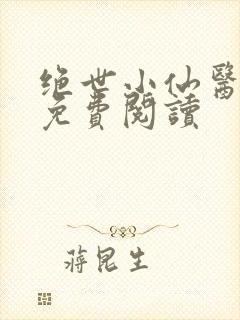 绝世小仙醫
免費閱讀
蔣昆生